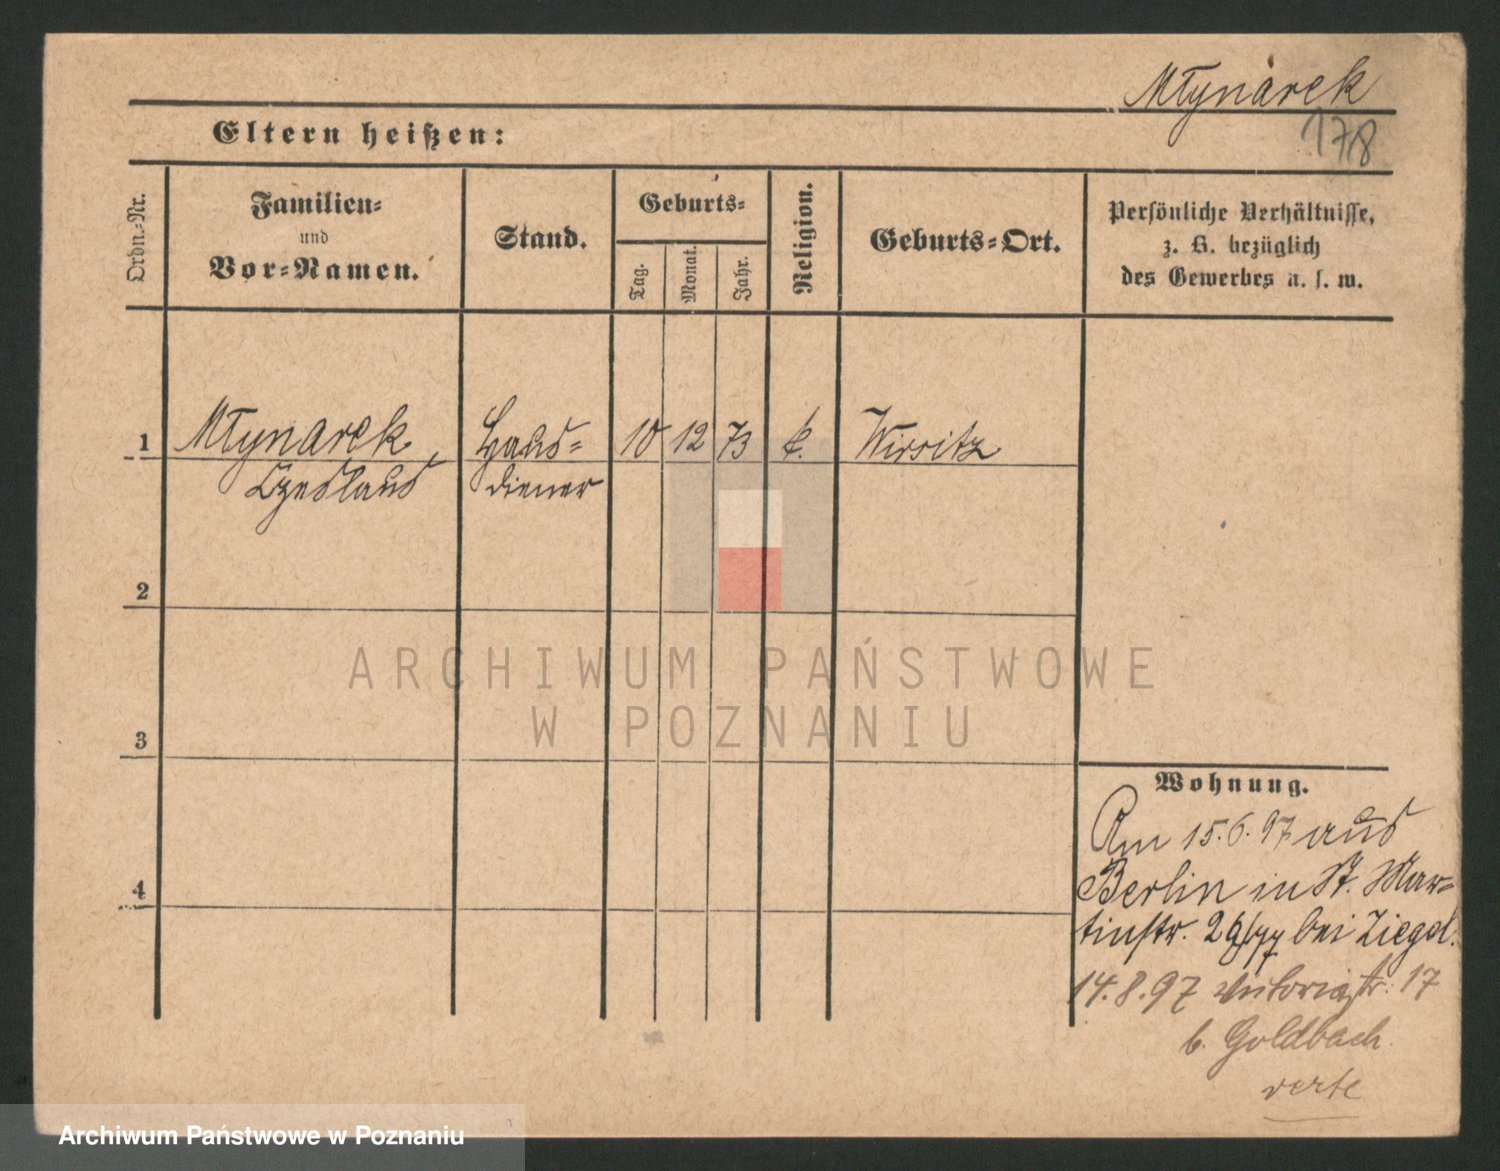 Młynarek
178
Eltern heißen:
Ordn.-Nr.
Familien-
und
Vor-Namen.
Stand.
Geburts-
Tag.
Monat.
Jahr.
Religion.
Geburts-Ort.
Persönliche Verhältnisse,
z. B. bezüglich
des Gewerbes u. s. w.
1
Młynarek,
Czeslaus
Haus-
diener
10
12
73
k.
Wirsitz
2
3
4
ARCHIWUM PAŃSTWOWE
W POZNANIU
Wohnung.
Am 15.6.97 aus
Berlin in St. Mar-
tinstr. bei Ziegel.
14.8.97 Victoriastr. 17
b. Goldbach.
verte
Archiwum Państwowe w Poznaniu